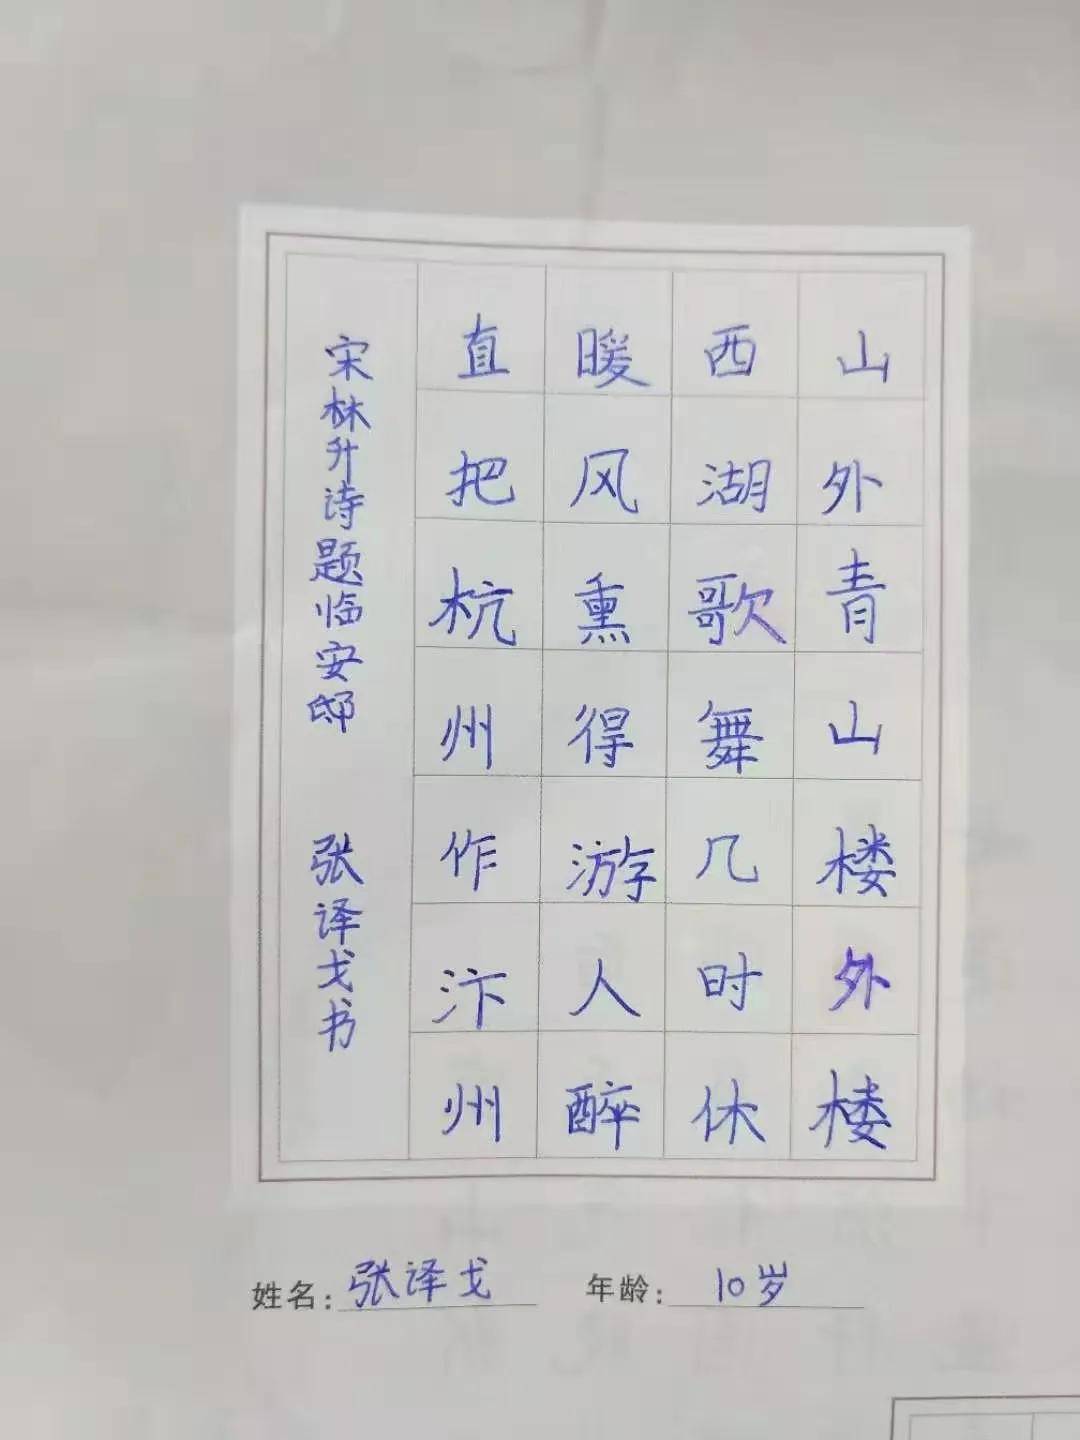 山外青山楼外楼
西湖歌舞几时休
暖风熏得游人醉
直把杭州作汴州
宋林升诗题临安邸 张译戈书
姓名：张译戈 年龄：10岁